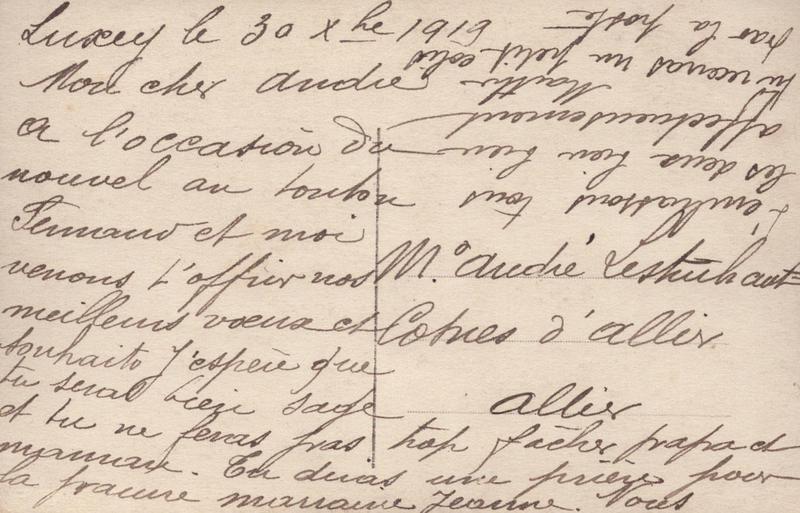 Luxey le 30 Xbre 1919
Mon cher André
A l'occasion du
nouvel an tonton
Fernand et moi
venons t'offrir nos
meilleurs vœux et
souhaits J'espère que
tu seras bien sage
et tu ne feras pas trop fâcher papa et
maman. Tu diras une prière pour
la pauvre marraine Jeanne. Nous
t'embrassons tous
les deux bien bien
affectueusement
Marthe
tu recevras un petit colis
par la poste
Mr. André
Cosnes d'allier
allier